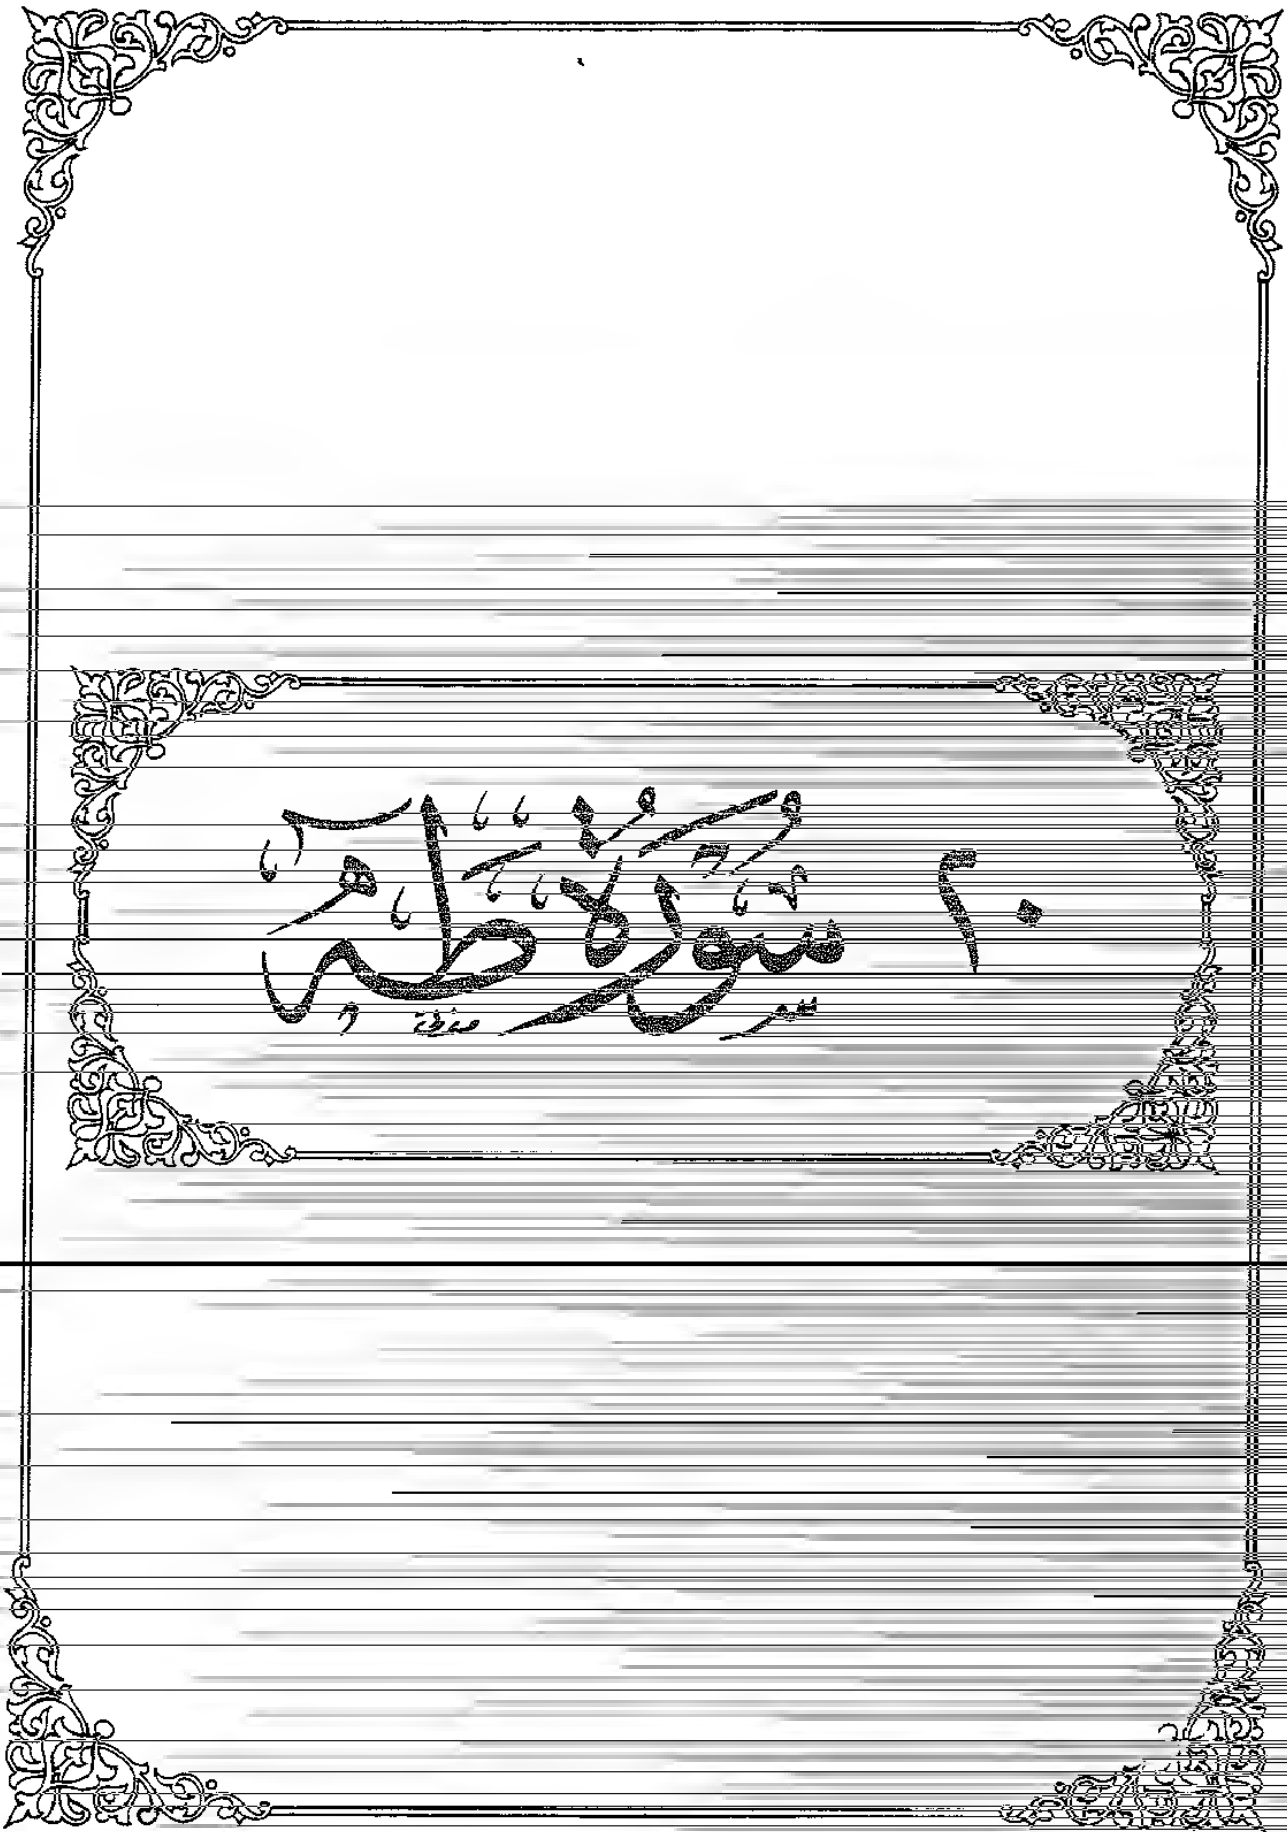 ٢٠ سُورَةُ طٰهٰ